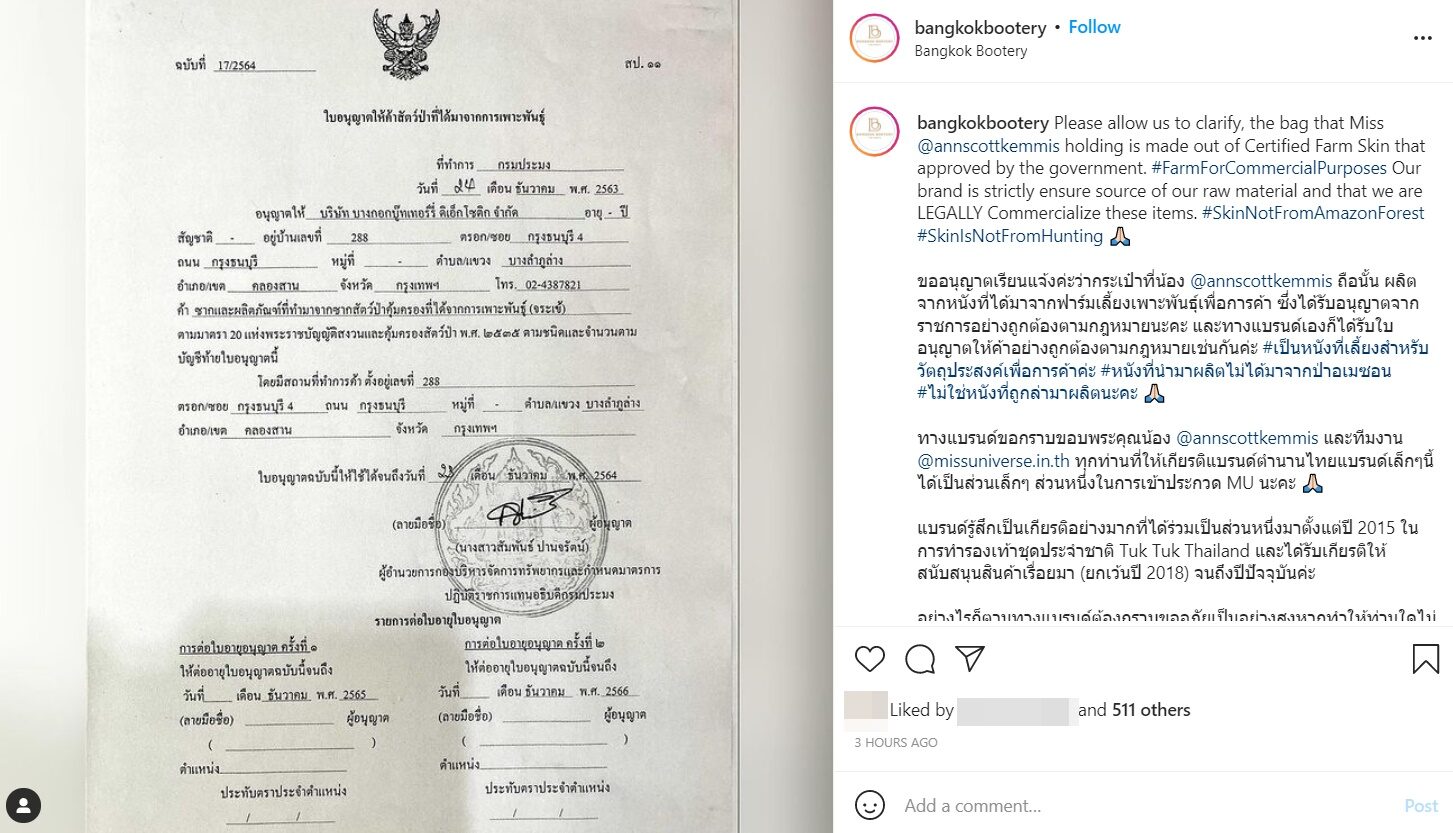 ฉบับที่ 17/2564
สป. ๑๑
ใบอนุญาตให้ค้าสัตว์ป่าที่ได้มาจากการเพาะพันธุ์
ที่ทำการ กรมประมง
วันที่ ๒๔ เดือน ธันวาคม พ.ศ. 2563
อนุญาตให้ บริษัท บางกอกบู๊ทเทอร์รี่ ดิเอ็กโซติก จำกัด อายุ - ปี
สัญชาติ - อยู่บ้านเลขที่ 288 ตรอก/ซอย กรุงธนบุรี 4
ถนน กรุงธนบุรี หมู่ที่ - ตำบล/แขวง บางลำภูล่าง
อำเภอ/เขต คลองสาน จังหวัด กรุงเทพฯ โทร. 02-4387821
ค้า ซากและผลิตภัณฑ์ที่ทำมาจากซากสัตว์ป่าคุ้มครองที่ได้จากการเพาะพันธุ์ (จระเข้)
ตามมาตรา 20 แห่งพระราชบัญญัติสงวนและคุ้มครองสัตว์ป่า พ.ศ. ๒๕๓๕ ตามชนิดและจำนวนตาม
บัญชีท้ายใบอนุญาตนี้
โดยมีสถานที่ทำการค้า ตั้งอยู่เลขที่ 288
ตรอก/ซอย กรุงธนบุรี 4 ถนน กรุงธนบุรี หมู่ที่ - ตำบล/แขวง บางลำภูล่าง
อำเภอ/เขต คลองสาน จังหวัด กรุงเทพฯ
ใบอนุญาตฉบับนี้ให้ใช้ได้จนถึงวันที่ ๒๓ เดือน ธันวาคม พ.ศ. 2564
(ลายมือชื่อ) ผู้อนุญาต
(นางสาวสัมพันธ์ ปานจรัตน์)
ผู้อำนวยการกองบริหารจัดการทรัพยากรและกำหนดมาตรการ
ปฏิบัติราชการแทนอธิบดีกรมประมง
รายการต่อใบอายุใบอนุญาต
การต่อใบอายุอนุญาต ครั้งที่ ๑
ให้ต่ออายุใบอนุญาตฉบับนี้จนถึง
วันที่ เดือน ธันวาคม พ.ศ. 2565
(ลายมือชื่อ) ผู้อนุญาต
( )
ตำแหน่ง
ประทับตราประจำตำแหน่ง
/ /
การต่อใบอายุอนุญาต ครั้งที่ ๒
ให้ต่ออายุใบอนุญาตฉบับนี้จนถึง
วันที่ เดือน ธันวาคม พ.ศ. 2566
(ลายมือชื่อ) ผู้อนุญาต
( )
ตำแหน่ง
ประทับตราประจำตำแหน่ง
/ /
bangkokbootery • Follow
Bangkok Bootery
bangkokbootery Please allow us to clarify, the bag that Miss
@annscottkemmis holding is made out of Certified Farm Skin that
approved by the government. #FarmForCommercialPurposes Our
brand is strictly ensure source of our raw material and that we are
LEGALLY Commercialize these items. #SkinNotFromAmazonForest
#SkinIsNotFromHunting 🙏🏻
ขออนุญาตเรียนแจ้งค่ะว่ากระเป๋าที่น้อง @annscottkemmis ถือนั้น ผลิต
จากหนังที่ได้มาจากฟาร์มเลี้ยงเพาะพันธุ์เพื่อการค้า ซึ่งได้รับอนุญาตจาก
ราชการอย่างถูกต้องตามกฎหมายนะคะ และทางแบรนด์เองก็ได้รับใบ
อนุญาตให้ค้าอย่างถูกต้องตามกฎหมายเช่นกันค่ะ #เป็นหนังที่เลี้ยงสำหรับ
วัตถุประสงค์เพื่อการค้าค่ะ #หนังที่นำมาผลิตไม่ได้มาจากป่าอเมซอน
#ไม่ใช่หนังที่ถูกล่ามาผลิตนะคะ 🙏🏻
ทางแบรนด์ขอกราบขอบพระคุณน้อง @annscottkemmis และทีมงาน
@missuniverse.in.th ทุกท่านที่ให้เกียรติแบรนด์ตำนานไทยแบรนด์เล็กๆนี้
ได้เป็นส่วนเล็กๆ ส่วนหนึ่งในการเข้าประกวด MU นะคะ 🙏🏻
แบรนด์รู้สึกเป็นเกียรติอย่างมากที่ได้ร่วมเป็นส่วนหนึ่งมาตั้งแต่ปี 2015 ใน
การทำรองเท้าชุดประจำชาติ Tuk Tuk Thailand และได้รับเกียรติให้
สนับสนุนสินค้าเรื่อยมา (ยกเว้นปี 2018) จนถึงปีปัจจุบันค่ะ
อย่างไรก็ตามทางแบรนด์ต้องกราบขออภัยเป็นอย่างสูงหากทำให้ท่านใดไม่
Liked by and 511 others
3 HOURS AGO
Add a comment...
Post